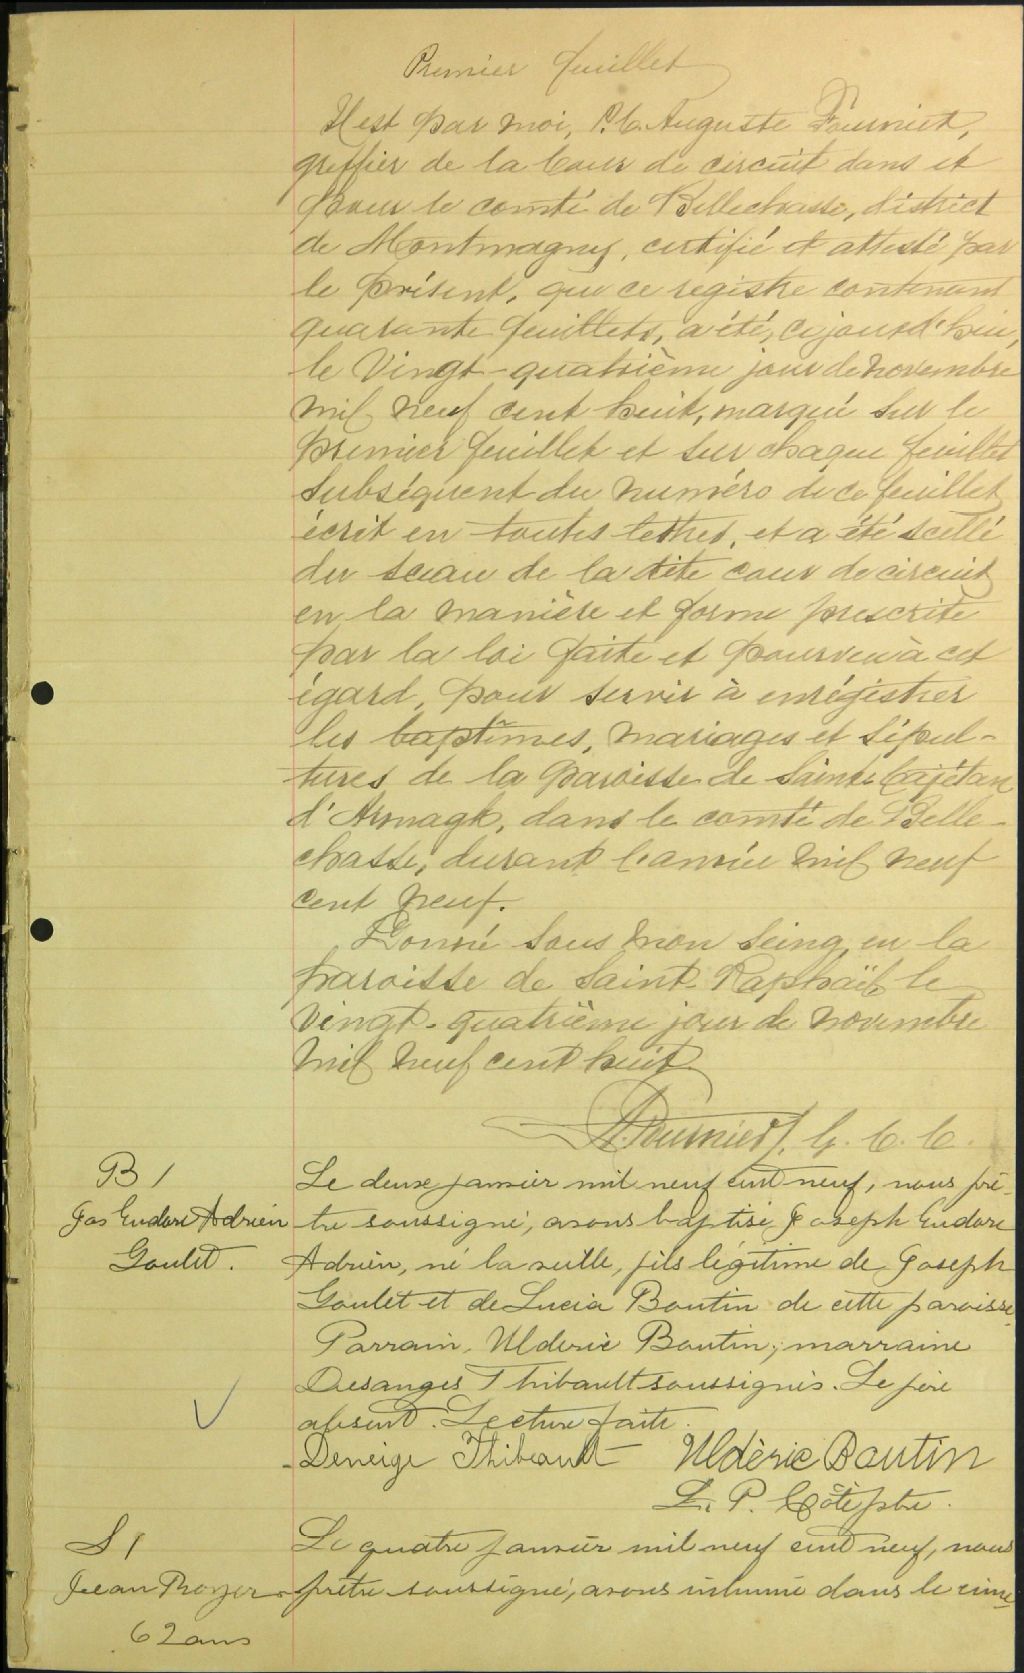 Premier feuillet
Il est par moi, P. C. Auguste Fournier,
greffier de la Cour de circuit dans et
pour le comté de Bellechasse, district
de Montmagny, certifié et attesté par
le présent, que ce registre contenant
quarante feuillets, a été, ce jourd'hui,
le Vingt-quatrième jour de novembre
mil neuf cent huit, marqué sur le
premier feuillet et sur chaque feuillet
subséquent du numéro de ce feuillet
écrit en toutes lettres, et a été scellé
du sceau de la dite cour de circuit
en la manière et forme prescrite
par la loi faite et pourvue à cet
égard, pour servir à enrégistrer
les baptêmes, mariages et sépul-
tures de la paroisse de Saint-Cajétan
d'Armagh, dans le comté de Belle-
chasse, durant l'année mil neuf
cent neuf.
Donné sous mon seing, en la
paroisse de Saint-Raphaël, le
Vingt-quatrième jour de novembre
mil neuf cent huit.
Fournier, G. C. C.
B 1
Jos Eudore Adrien
Goulet.
Le deux janvier mil neuf cent neuf, nous prê-
tre soussigné, avons baptisé Joseph Eudore
Adrien, né la veille, fils légitime de Joseph
Goulet et de Lucia Boutin de cette paroisse.
Parrain, Ulderic Boutin; marraine
Desanges Thibault soussignés. Le père
absent. Lecture faite.
Deneige Thibault Uldèric Boutin
L. P. Côté ptre.
S 1
Jean Royer
62 ans
Le quatre janvier mil neuf cent neuf, nous
prêtre soussigné, avons inhumé dans le cime-